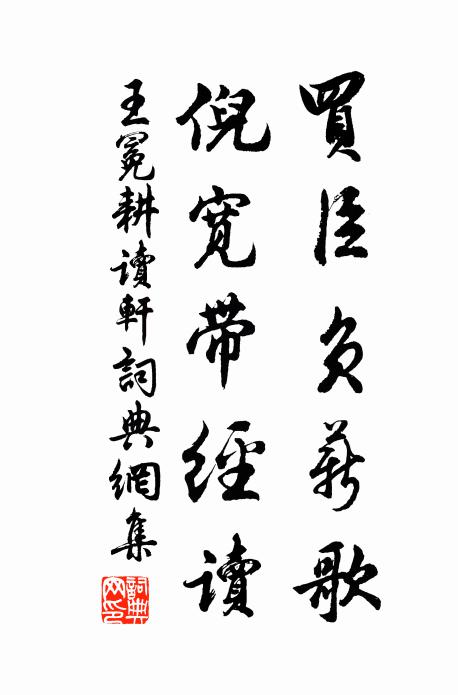 買臣負薪歌
倪寬帶經讀
王冕耕讀軒詞典網集
詞典網印